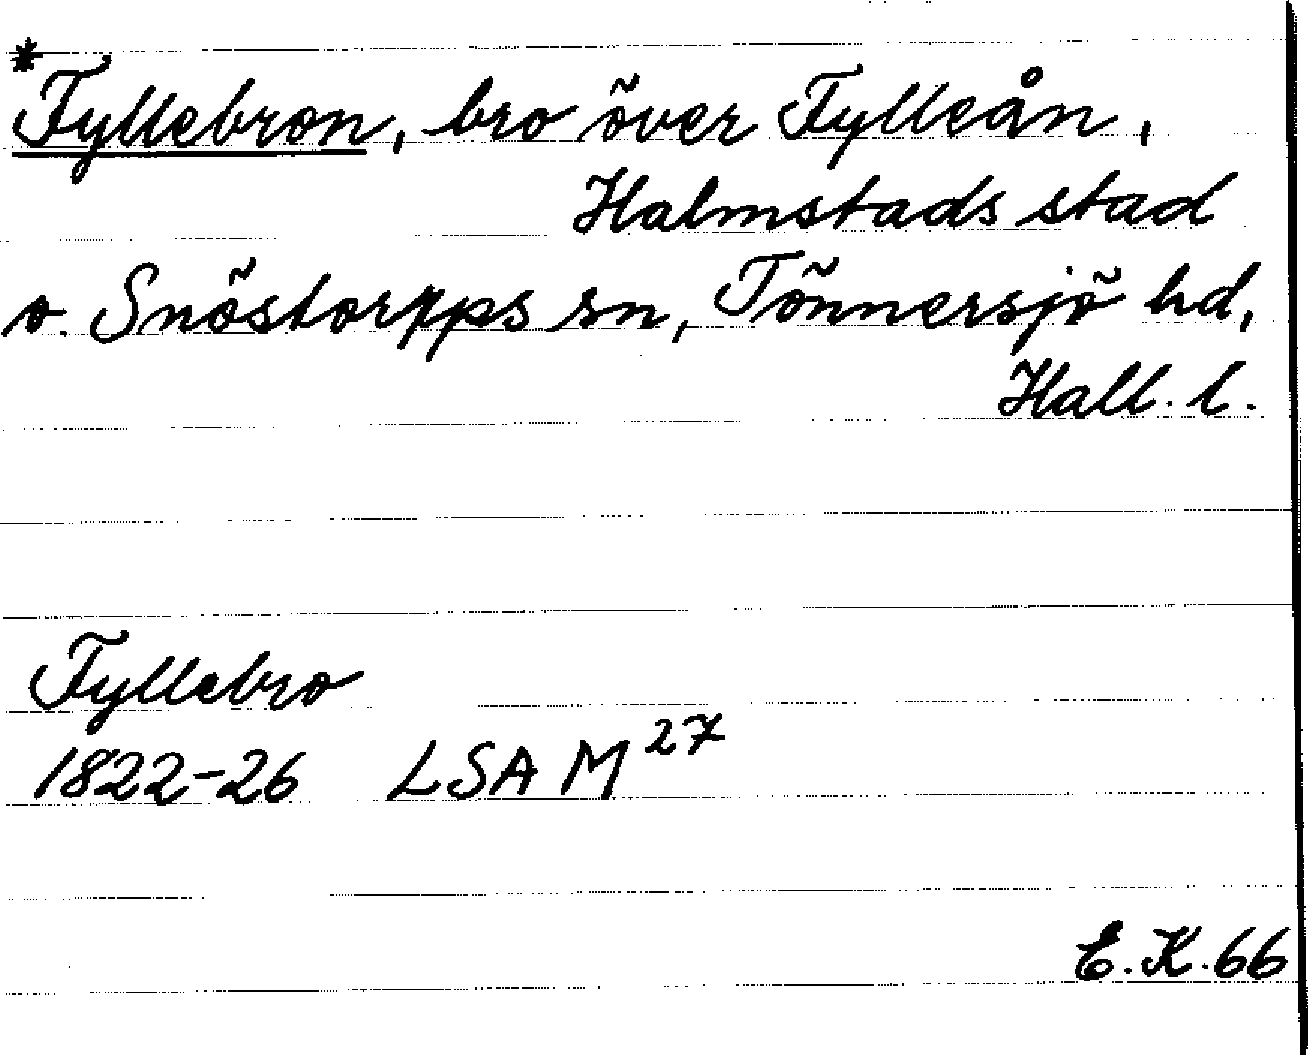 *
Fyllebron, bro över Fylleån,
Halmstads stad
o. Snöstorpps sn, Tönnersjö hd,
Hall. l.
Fyllebro
1822-26 LSA M 27
E.K.66